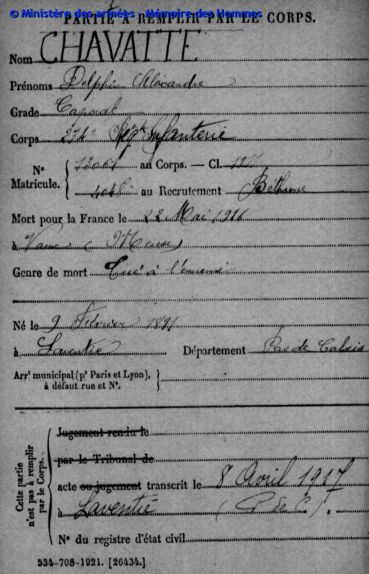 © Ministère des armées - Mémoire des Hommes
PARTIE À REMPLIR PAR LE CORPS.
Nom CHAVATTE
Prénoms Delphin Alexandre
Grade Caporal
Corps Rgt Infanterie
N° Matricule. au Corps. — Cl.
au Recrutement Béthune
Mort pour la France le 22 Mai 1916
à Vaux (Meuse)
Genre de mort Tué à l'ennemi
Né le 9 Février 1891
à Laventie Département Pas de Calais
Arrt municipal (pr Paris et Lyon),
à défaut rue et N°.
Cette partie n'est pas à remplir par le Corps.
Jugement rendu le
par le Tribunal de
acte ou jugement transcrit le 8 Avril 1917
à Laventie (P de C).
N° du registre d'état civil
534-708-1921. [26434.]